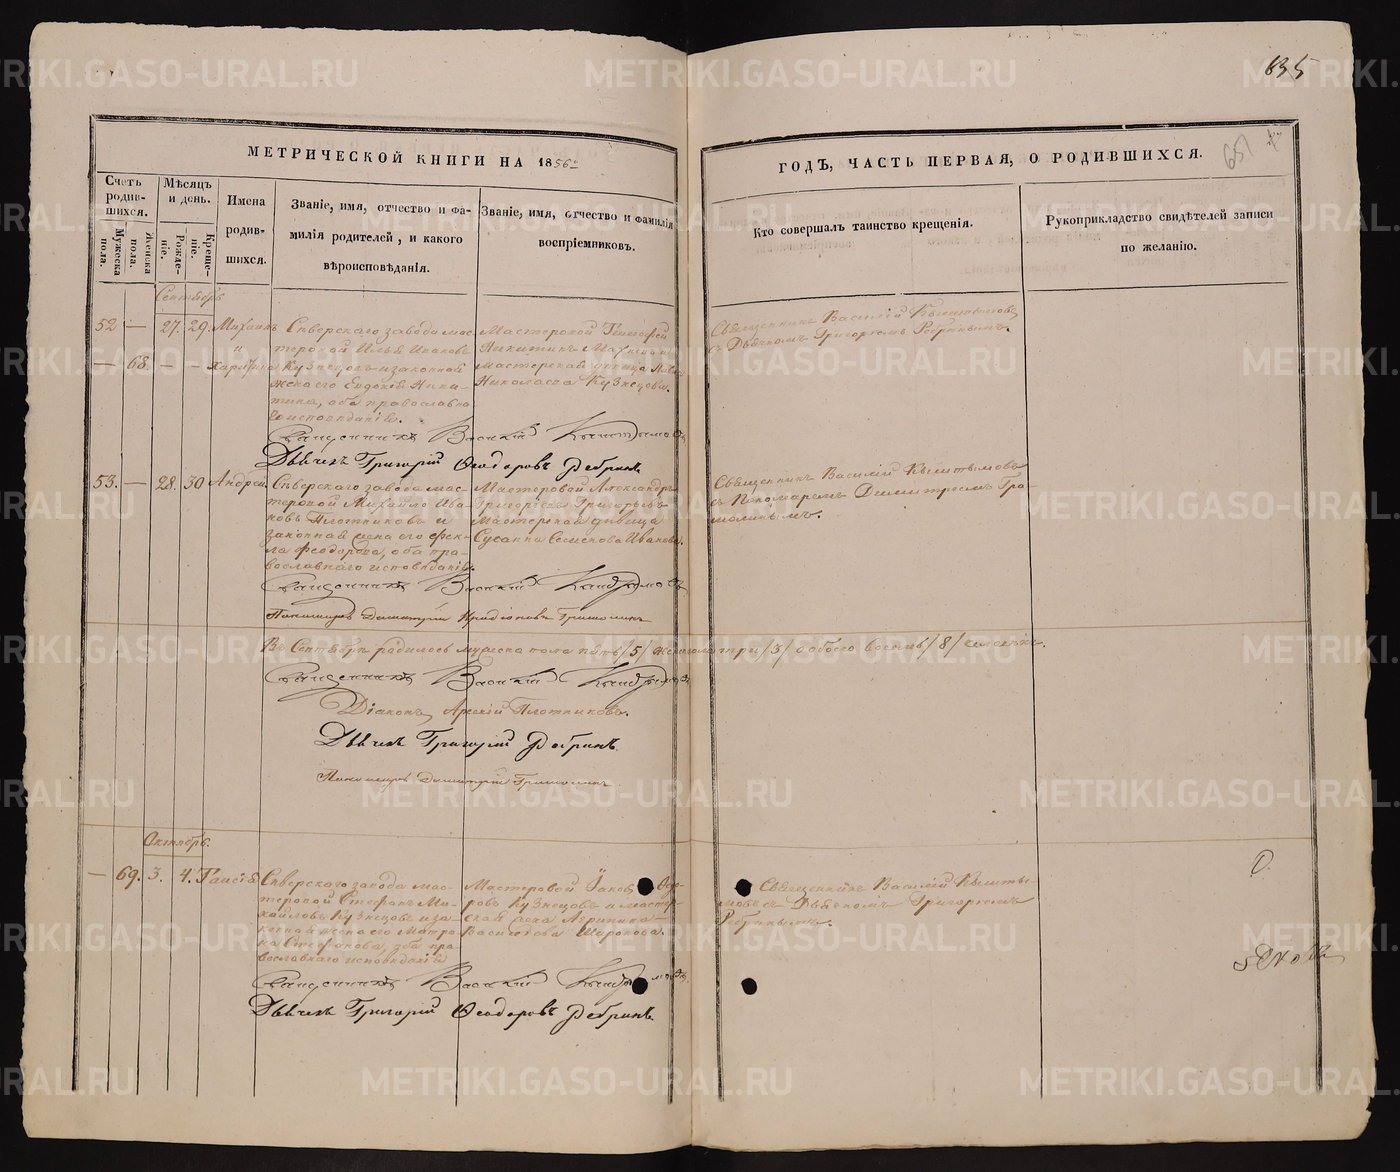 635
657
МЕТРИЧЕСКОЙ КНИГИ НА 1856й
ГОДЪ, ЧАСТЬ ПЕРВАЯ, О РОДИВШИХСЯ.
Счетъ родив-шихся.
Мужеска пола.
Женска пола.
Мѣсяцъ и день.
Рожде-ніе.
Креще-ніе.
Имена
родив-
шихся.
Званіе, имя, отчество и фа-
милія родителей, и какого
вѣроисповѣданія.
Званіе, имя, отчество и фамилія
воспріемниковъ.
Кто совершалъ таинство крещенія.
Рукоприкладство свидѣтелей записи
по желанію.
Сентябрь
52 — 27. 29. Михаилъ
— 68. — —
Сѣверскаго завода мас-
теровой Илья Ивановъ
Кузнецовъ и законная
жена его Евдокія Ники-
тина, оба православна-
го исповѣданія.
Мастеровой Тимофей
Никитинъ
мастерская дѣвица
Николаева Кузнецовы.
Священникъ Василій Кыштымовъ
съ Дьячкомъ Григоріемъ Ребринымъ.
Священникъ Василій Кыштымовъ
Дьячекъ Григорій Ѳеодоровъ Ребринъ
53. — 28. 30 Андрей
Сѣверскаго завода мас-
теровой Михайло Ива-
новъ Плотниковъ и
законная жена его Ѳек-
ла Феодорова, оба пра-
вославнаго исповѣданія.
Мастеровой Александръ
Григорьевъ Григорьевъ
Мастерская дѣвица
Сусанна Семенова Иванова.
Священникъ Василій Кыштымовъ
съ Пономаремъ Димитріемъ Гра-
молинымъ.
Священникъ Василій Кыштымовъ
Пономарь Димитрій
Въ Сентябрѣ родилось мужеска пола пять /5/ женска три /3/ обоего восемь /8/ человѣкъ.
Священникъ Василій Кыштымовъ
Діаконъ Арсеній Плотниковъ.
Дьячекъ Григорій Ребринъ
Пономарь Димитрій
Октябрь.
— 69. 3. 4. Таисія
Сѣверскаго завода мас-
теровой Стефанъ Ми-
хайловъ Кузнецовъ и за-
конная жена его Матро-
на Стефанова, оба пра-
вославнаго исповѣданія
Мастеровой Іаковъ Ѳедо-
ровъ Кузнецовъ и мастер-
ская Агрипина
Васильева Широкова.
Священникъ Василій Кышты-
мовъ съ Дьячкомъ Григоріемъ
Ребринымъ.
Священникъ Василій Кыштымовъ
Дьячекъ Григорій Ѳеодоровъ Ребринъ.
METRIKI.GASO-URAL.RU